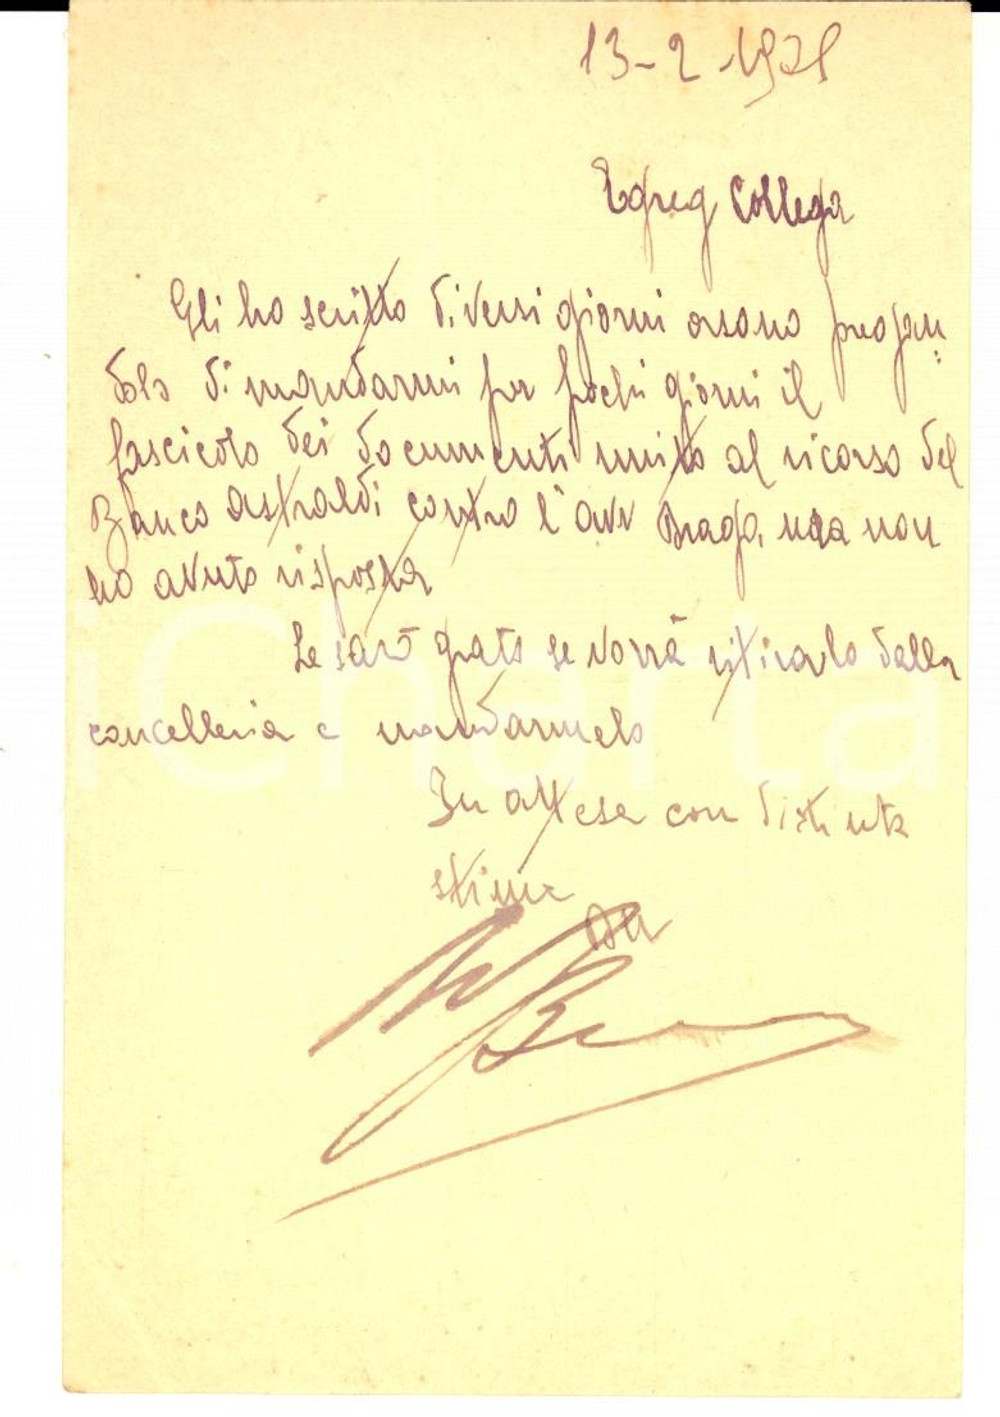 13-2-1931
Egreg Collega
Gli ho scritto diversi giorni orsono pregan=
dolo di mandarmi per pochi giorni il
fascicolo dei documenti unito al ricorso del
Banco Astraldi contro l'avv Braga, ma non
ho avuto risposta
Le sarò grato se vorrà ritirarlo dalla
cancelleria e mandarmelo
In attesa con distinta
stima
iCharta